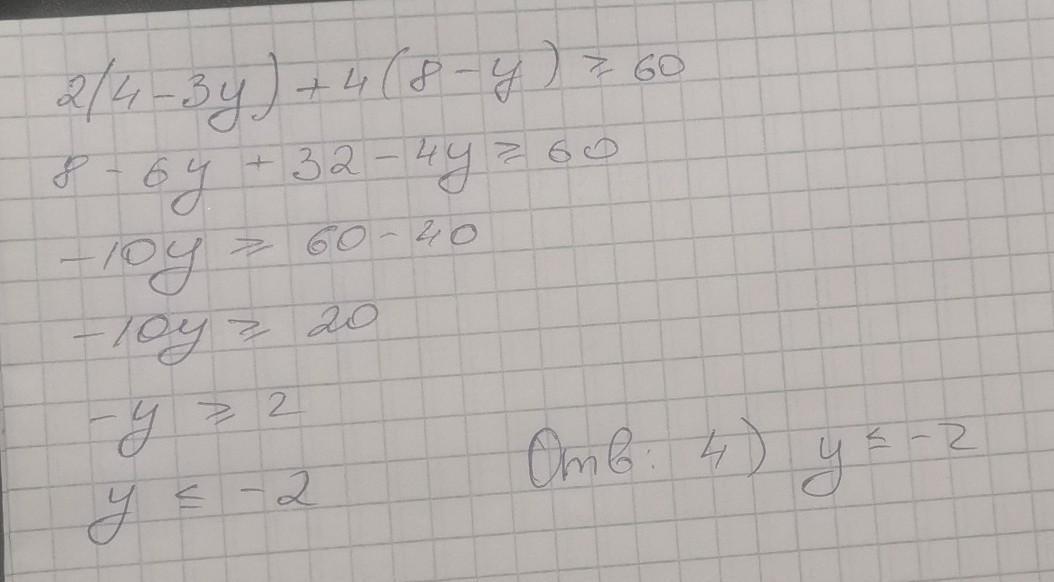 2(4-3y)+4(8-y) ≥ 60
8-6y+32-4y ≥ 60
-10y ≥ 60-40
-10y ≥ 20
-y ≥ 2
y ≤ -2
Отв: 4) y ≤ -2